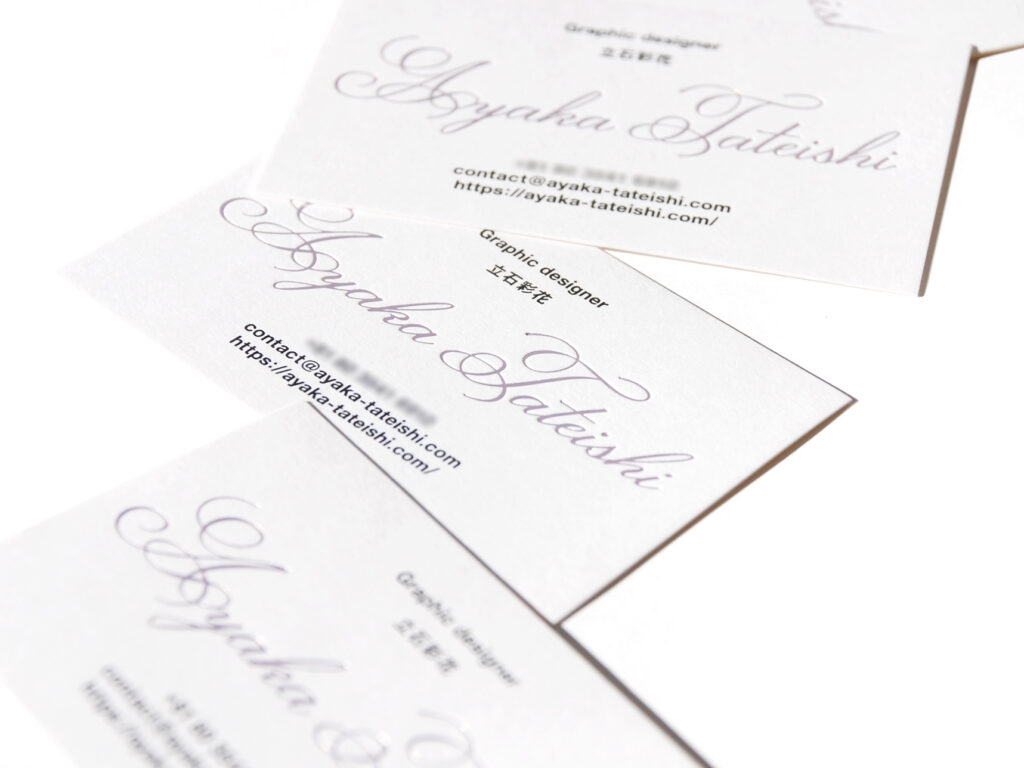 is
Graphic designer
立石彩花
Ayaka Tateishi
contact@ayaka-tateishi.com
https://ayaka-tateishi.com/
Graphic designer
立石彩花
Ayaka Tateishi
contact@ayaka-tateishi.com
https://ayaka-tateishi.com/
Graphic designer
立石彩花
Ayaka